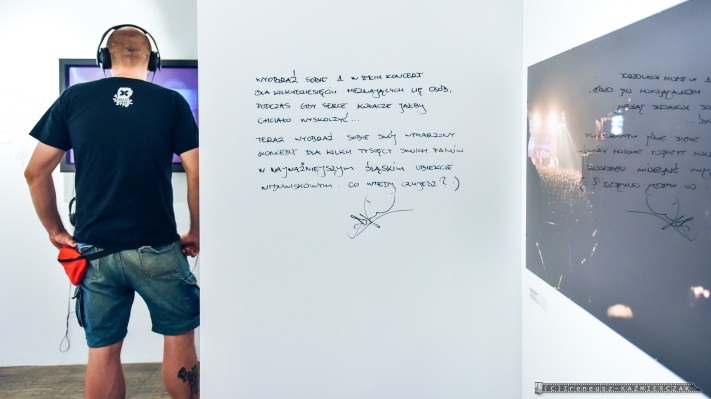 WYOBRAŹ SOBIE 1 W ŻYCIU KONCERT
DLA KILKUDZIESIĘCIU NIEZNAJĄCYCH CIĘ OSÓB,
PODCZAS GDY SERCE KOŁACZE JAKBY
CHCIAŁO WYSKOCZYĆ...
TERAZ WYOBRAŹ SOBIE SWÓJ WYMARZONY
KONCERT DLA KILKU TYSIĘCY SWOICH FANÓW
W NAJWAŻNIEJSZYM ŚLĄSKIM OBIEKCIE
WIDOWISKOWYM. CO WTEDY CZUJESZ? :)
(C) Ireneusz KAŹMIERCZAK